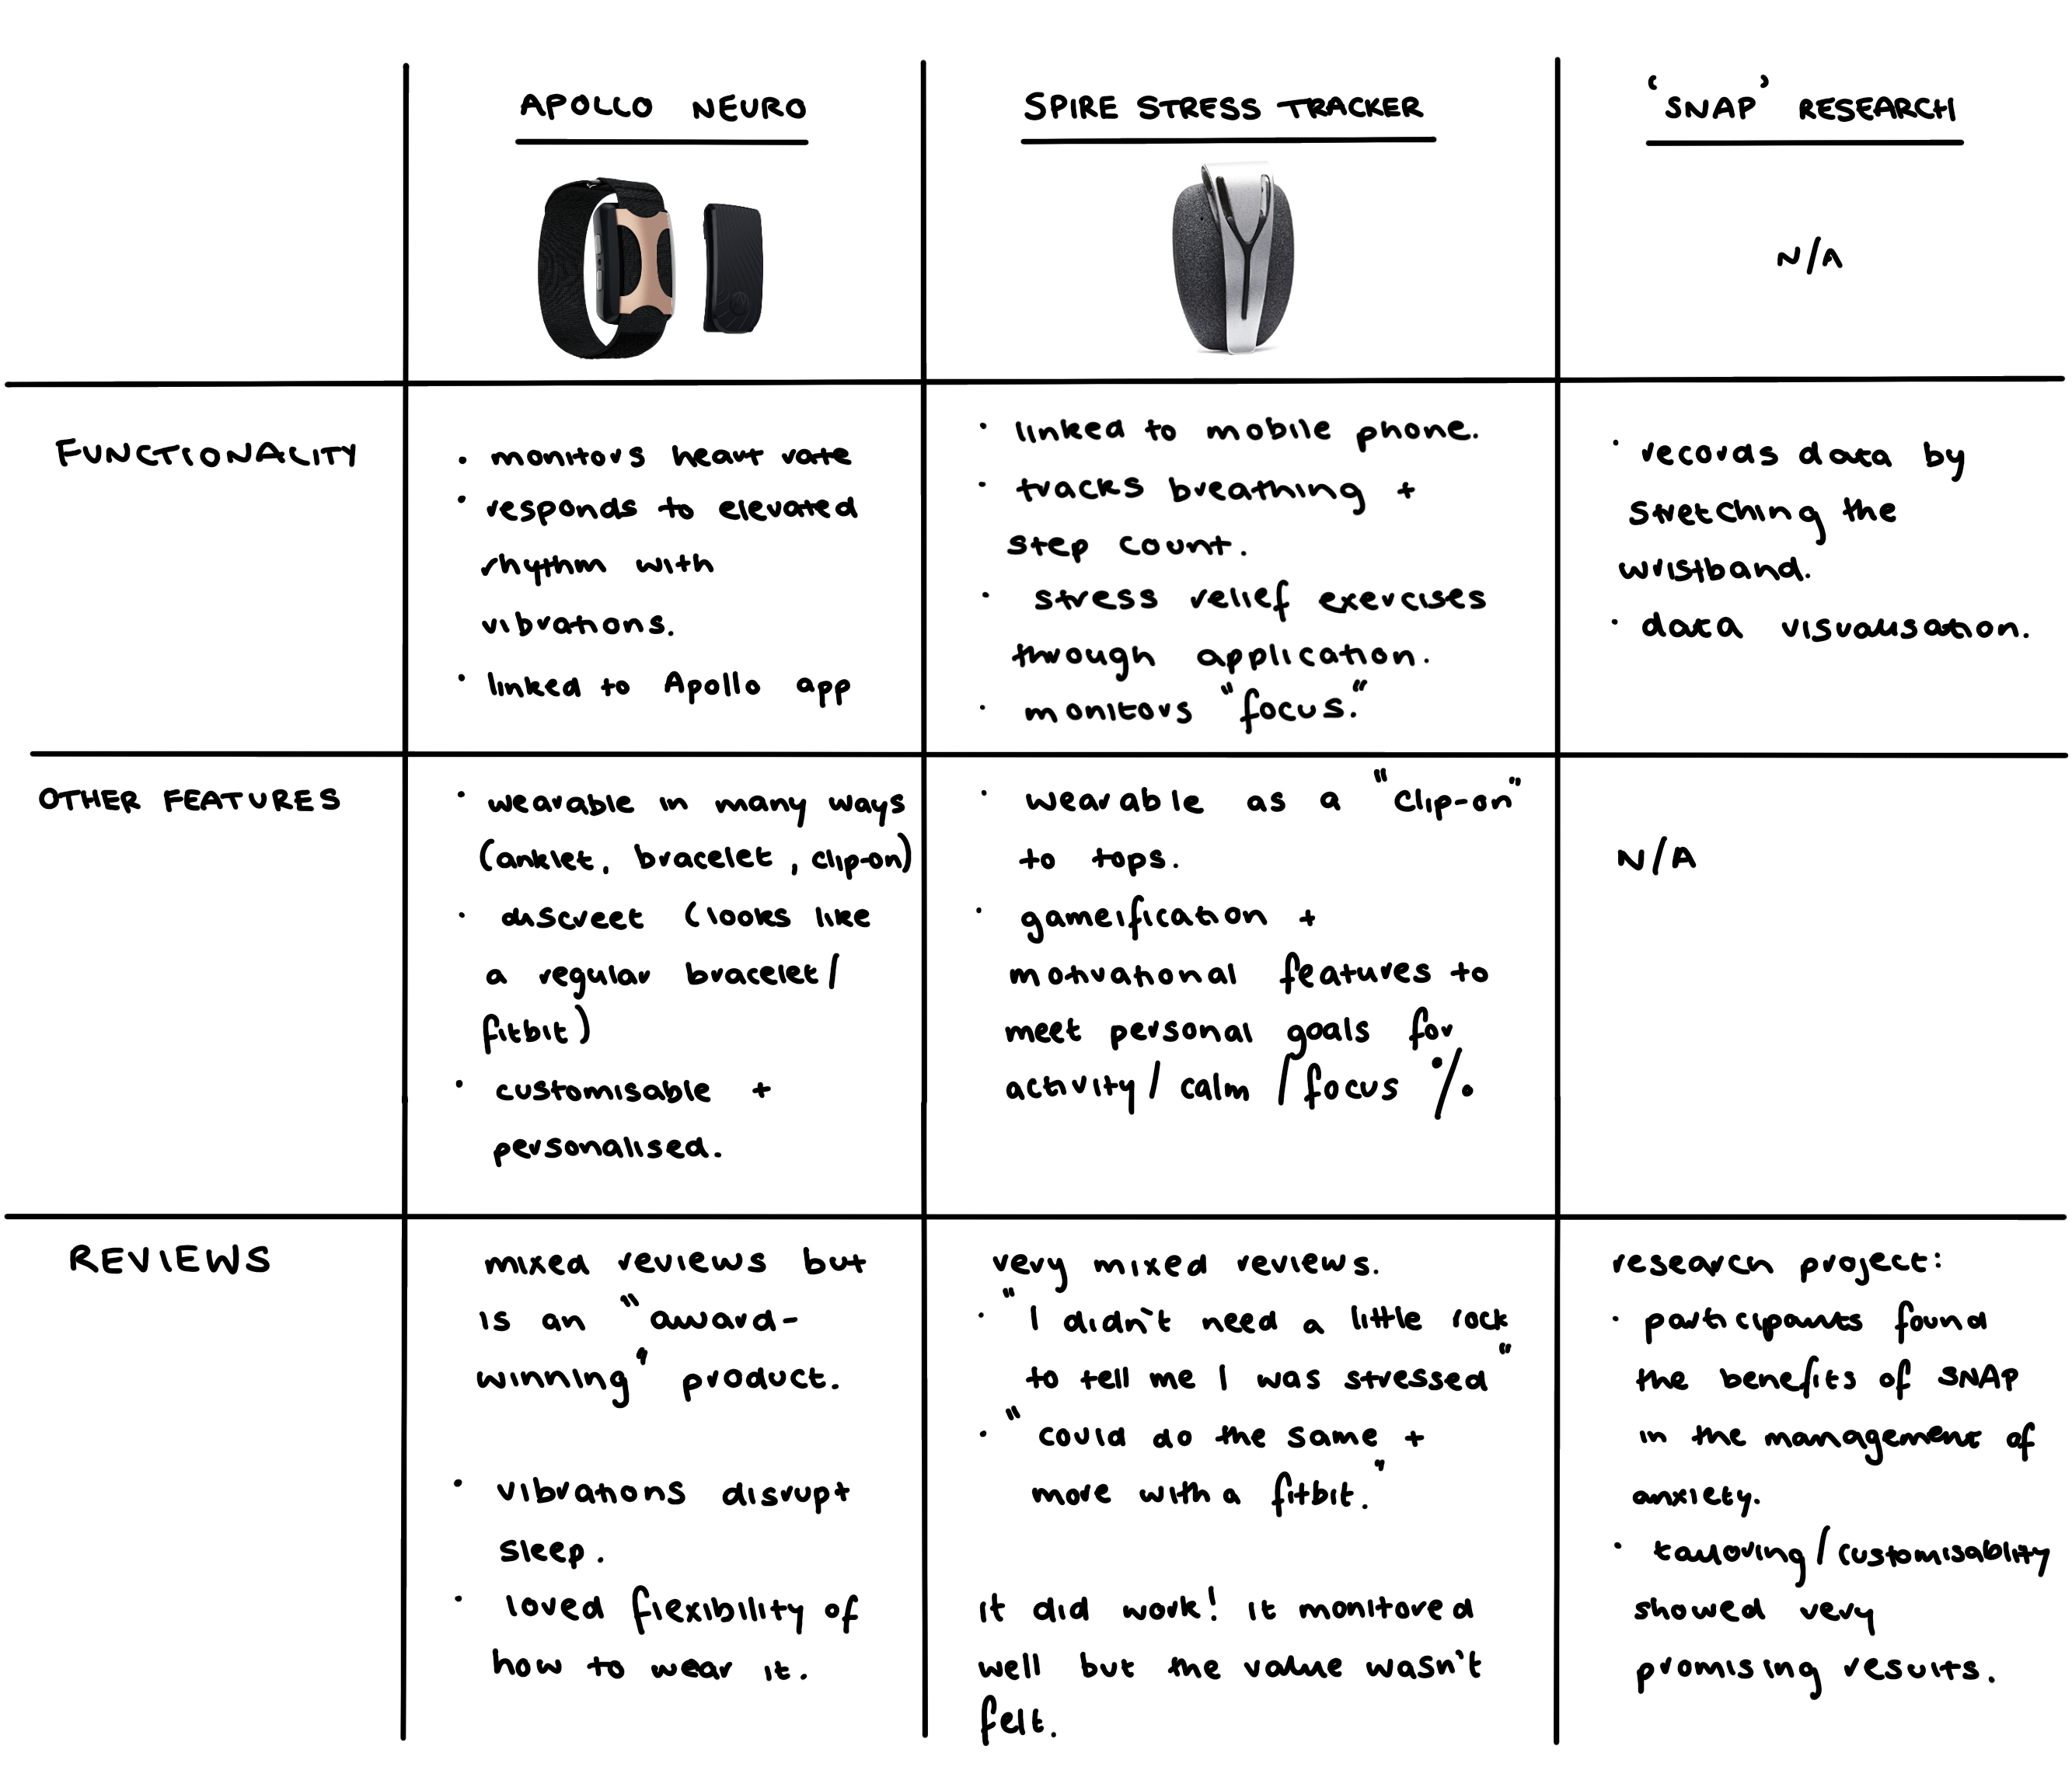 APOLLO NEURO
SPIRE STRESS TRACKER
'SNAP' RESEARCH
N/A
FUNCTIONALITY
· monitors heart rate
· responds to elevated
rhythm with
vibrations.
· linked to Apollo app
· linked to mobile phone.
· tracks breathing +
step count.
· stress relief exercises
through application.
· monitors "focus."
· records data by
stretching the
wristband.
· data visualisation.
OTHER FEATURES
· wearable in many ways
(anklet, bracelet, clip-on)
· discreet (looks like
a regular bracelet/
fitbit)
· customisable +
personalised.
· wearable as a "clip-on"
to tops.
· gameification +
motivational features to
meet personal goals for
activity/ calm /focus %
N/A
REVIEWS
mixed reviews but
is an "award-
winning" product.
· vibrations disrupt
sleep.
· loved flexibility of
how to wear it.
very mixed reviews.
· "I didn't need a little rock
to tell me I was stressed"
· "could do the same +
more with a fitbit."
it did work! it monitored
well but the value wasn't
felt.
research project:
· participants found
the benefits of SNAP
in the management of
anxiety.
· tailoring/customisablity
showed very
promising results.